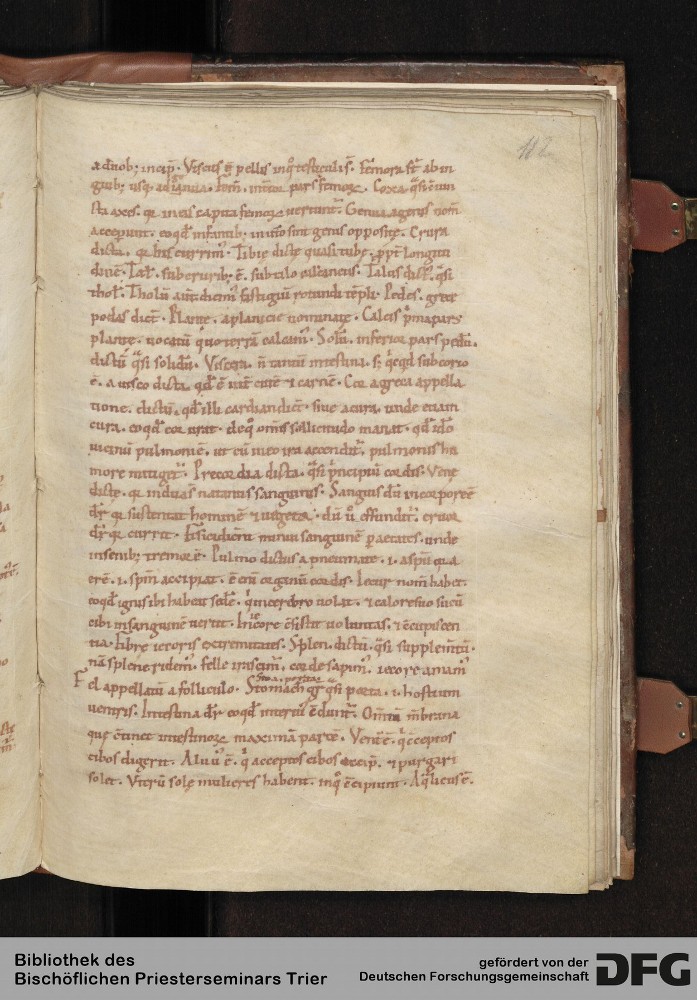 182
a duob; incip̄. Viscus ē pellis inq̊ testiculi s̄. Femora st̄ ab in
guib; usq; ad genua. Fem̄. interior pars femorꝫ. Coxa. q̄si c̄iun
cti axes. qr̄ in eis capita femorꝫ uertunt̄. Genua a genis nom̄
acceperunt. eo qd̄ infantib; in utero sint genis opposite. Crura
dicta. qr̄ his currim̄. Tibie dicte quasi tube. ꝓpt̄ longitu
dinē. Tal̄. sub crurib; ē. sub talo calcaneus. Talus dict̄. q̄si
thol̄. Tholū aut̄ dicim̄ fastigiū rotundi tēpli. Pedes. grece
podas dict̄. Plante. a planicie nominate. Calcis p̄ma pars
plante. uocatū quo terrā calcam̄. Solū. inferior pars pedū.
dictū q̄si solidū. Viscera. n̄ tantū intestina. s; q̄cqd̄ sub corio
ē. a uisco dicta. qd̄ ē int̄ cutē ⁊ carnē. Cor a greca appella
tione. dictū. qd̄ illi cardian dict̄. siue a cura. unde etiam
cura. eo qd̄ cor urat. de q̊ om̄is sollicitudo manat. qd̄ ido
uicinū pulmoni ē. ut cū in eo ira accendit̄. pulmonis hu
more mitiget̄. Precordia dicta. q̄si p̄ncipiū cordis. Vene
dicte. qr̄ in duas natantis sanguinis. Sanguis dū in corpore ē
dr̄ qr̄ sustentat hominē ⁊ uegetat. dū ů effundit̄. cruor
dr̄ qr̄ currit. minui sanguinē ꝑ aetates. unde
in senib; tremor ē. Pulmo dictus a pneumate. i. aspū qr̄ a
erē. i. spm̄ accipiat. ē eni organū cordis. Iecur nom̄ habet.
eo qd̄ ignis ibi habeat sedē. q̄ in cerebro uolat. ⁊ calore suo sucū
cibi in sanguinē uertit. In iecore c̄sistit uoluntas. ⁊ c̄cupiscen
tia. Fibre iecoris extremitates. Splen. dictū. q̄si supplemtū.
nā splene ridem̄. felle irascim̄. corde sapim̄. iecore amam̄.
Fel appellatū a folliculo. Stomach̄ gr̄ q̄si porta. i. hostium
uentris. Intestina dr̄ eo qd̄ interius c̄dunt̄. Om̄ia m̄brana
que c̄tinet intestinorꝫ maximā partē. Vent̄ ē. q̄ acceptos
cibos digerit. Aluū ē. q̄ acceptos cibos recip̄. ⁊ purgari
solet. Vterū sole mulieres habent. in q̊ c̄cipiunt. Aq̄licus ē.
Bibliothek des
Bischöflichen Priesterseminars Trier
gefördert von der
Deutschen Forschungsgemeinschaft
DFG